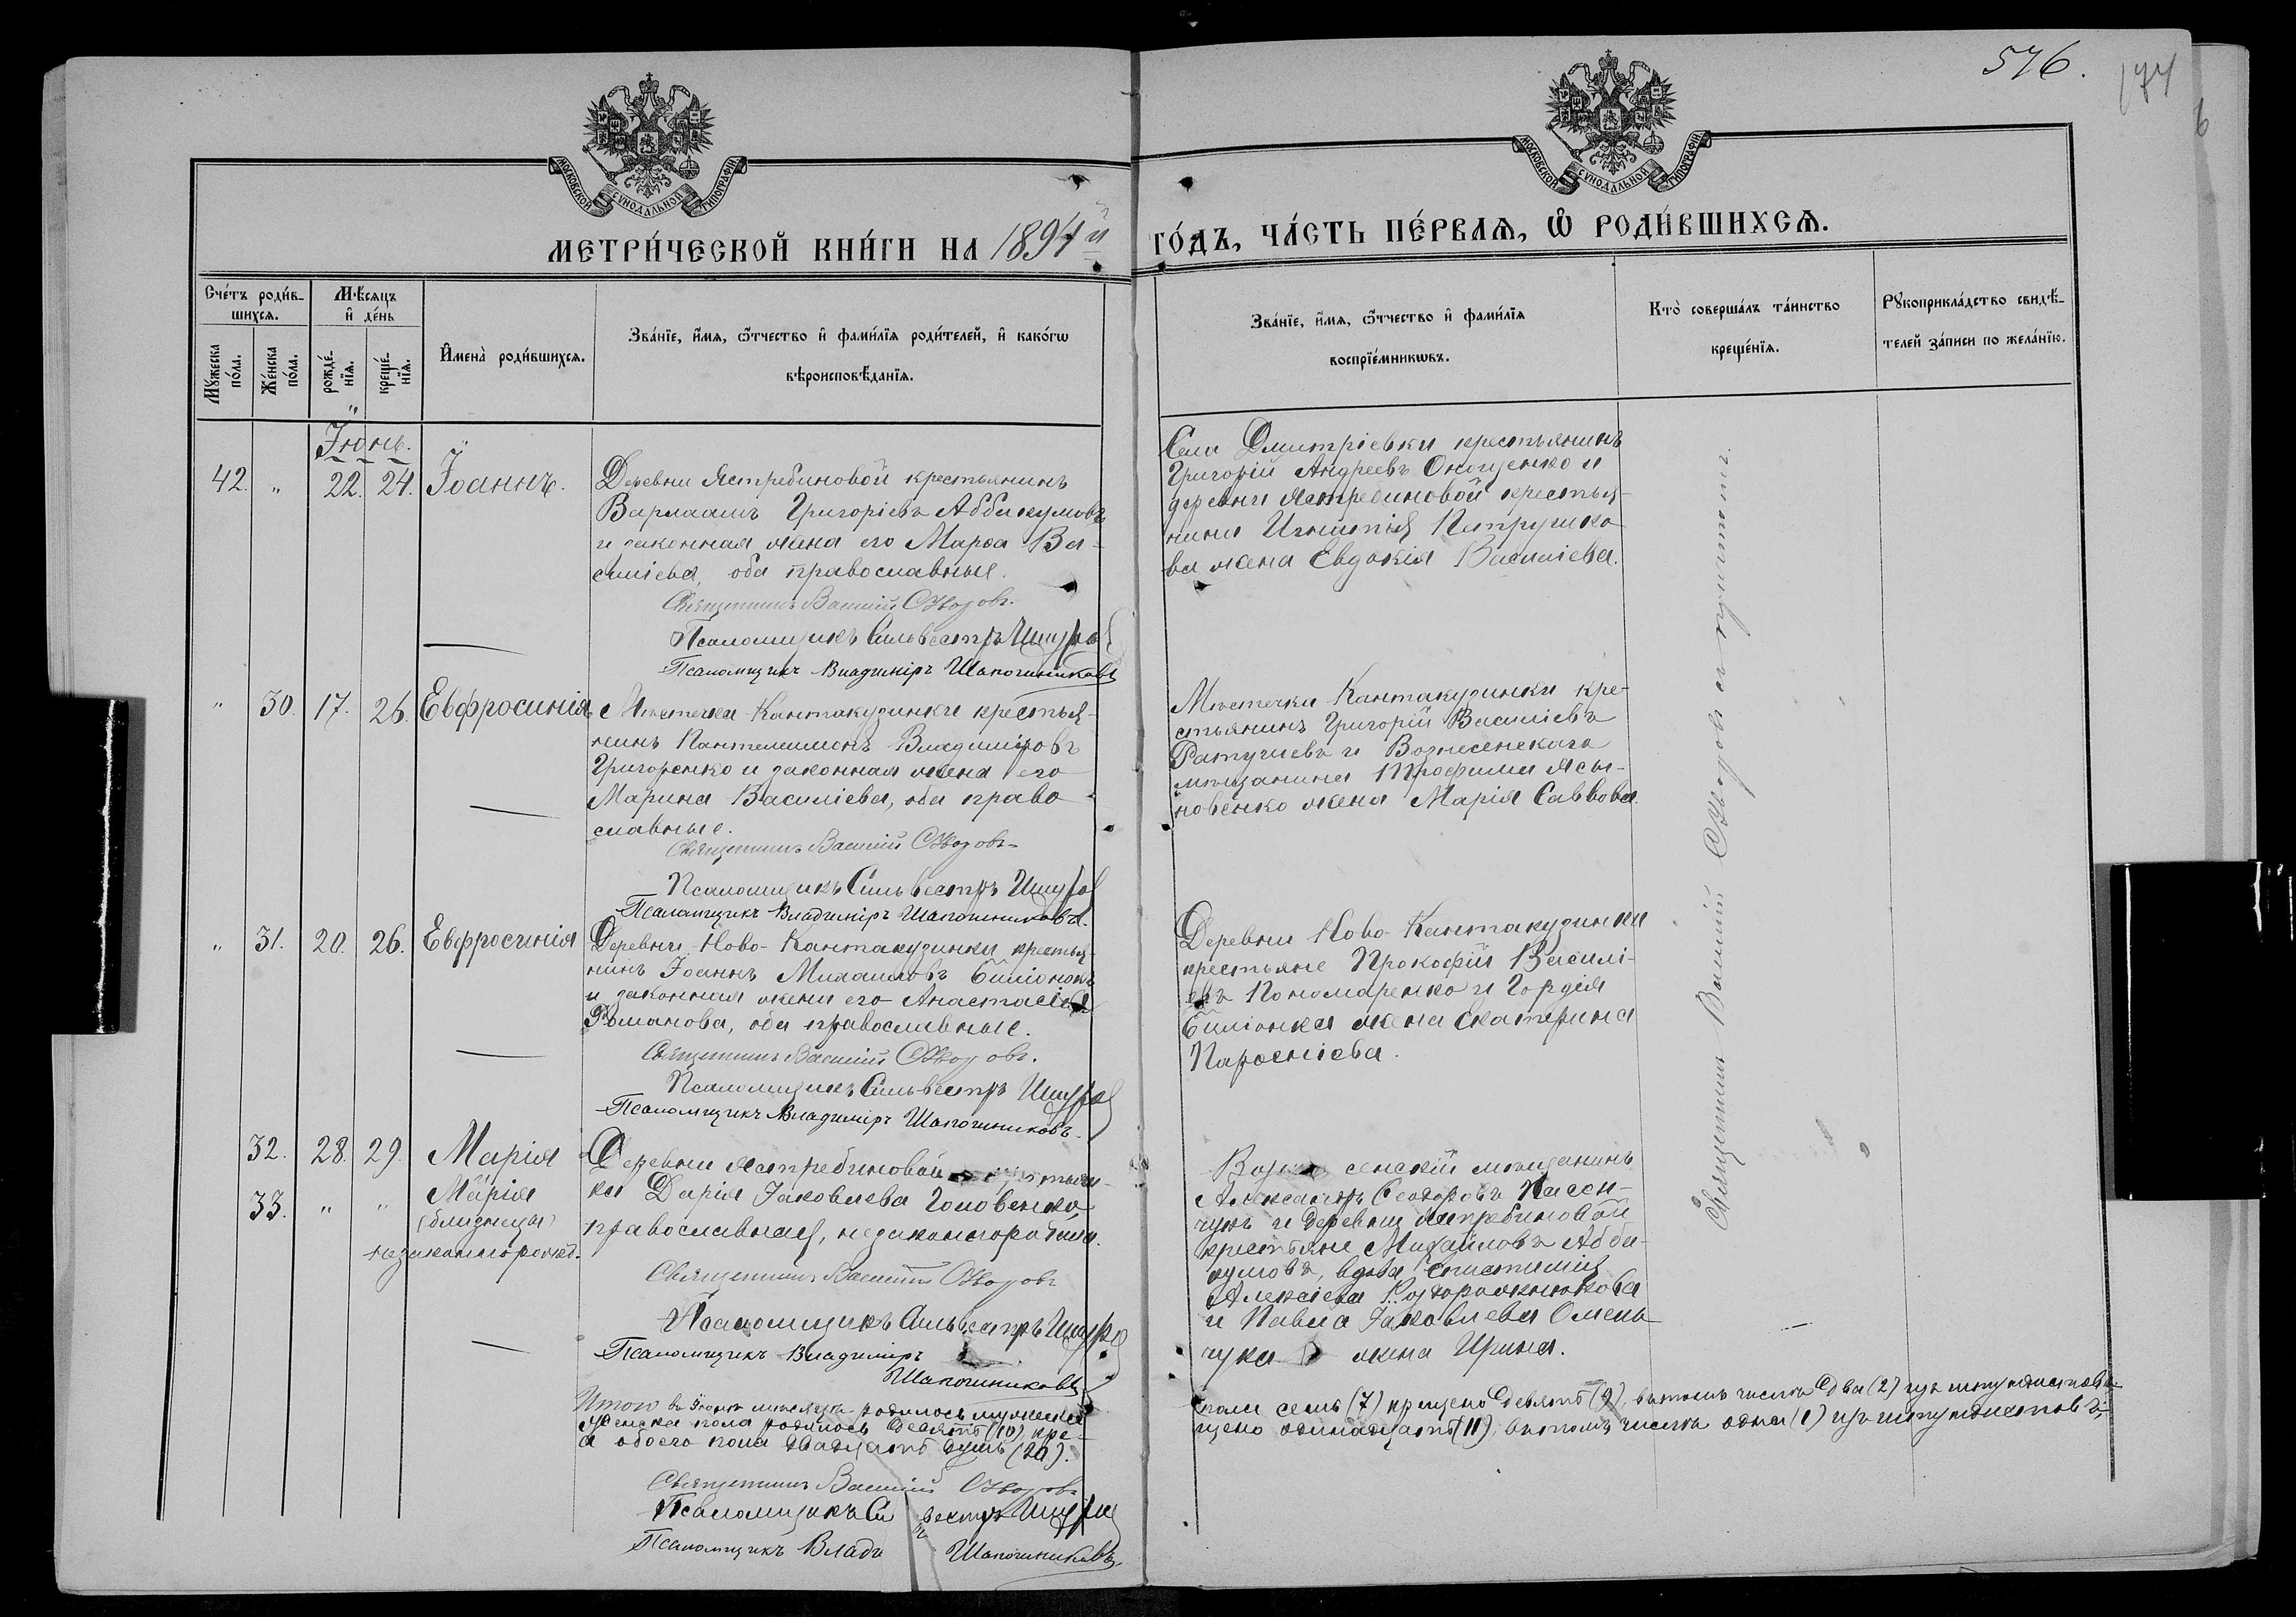 576.
174
6
МОСКОВСКОЙ СУНОДАЛЬНОЙ ТИПОГРАФІИ
МОСКОВСКОЙ СУНОДАЛЬНОЙ ТИПОГРАФІИ
МЕТРИ́ЧЕСКОЙ КНИ́ГИ НА 1894й ГО́ДЪ, ЧА́СТЬ ПЕ́РВАѦ, Ѽ РОДИ́ВШИХСѦ.
Сче́тъ роди́в-
шихсѧ.
Мꙋ́жеска по́ла.
Же́нска по́ла.
Мѣ́сѧцъ
и҆ де́нь
рожде́-
нїѧ.
креще́-
нїѧ.
И҆мена̀ роди́вшихсѧ.
Зва́нїе, и҆́мѧ, ѻ҆́тчество и҆ фами́лїѧ роди́телей, и҆ како́гѡ
вѣроисповѣ́данїѧ.
Зва́нїе, и҆́мѧ, ѻ҆́тчество и҆ фами́лїѧ
воспрїе́мникѡвъ.
Кто̀ соверша́лъ та́инство
креще́нїѧ.
Рꙋкоприкла́дство свидѣ́-
телей за́писи по жела́нїю.
Іюнь.
42. " 22. 24. Іоаннъ.
Деревни Ястребиновой крестьянинъ
Варлаамъ Григоріевъ Аббакумовъ
и законная жена его Марѳа Ва-
силіева, оба православные.
Священникъ Василій
Псаломщикъ Сильвестръ
Псаломщикъ Владиміръ Шапошниковъ
Села Дмитріевки крестьянинъ
Григорій Андреевъ Онощенко и
деревни Ястребиновой крестья-
нина Игнатія Петрушко-
ва жена Евдокія Василіева.
" 30. 17. 26. Евфросинія
Мѣстечка Кантакузинки крестья-
нинъ Пантелеимонъ Владиміровъ
Григоренко и законная жена его
Марина Василіева, оба право
славные.
Священникъ Василій
Псаломщикъ Сильвестръ
Псаломщикъ Владиміръ Шапошниковъ.
Мѣстечка Кантакузинки кре-
стьянинъ Григорій Василіевъ
и Вознесенскаго
мѣщанина Трофима Ясы-
новенко жена Марія Саввова.
" 31. 20. 26. Евфросинія
Деревни Ново-Кантакузинки крестья-
нинъ Іоаннъ
и законная жена его Анастасія
Романова, оба православные.
Священникъ Василій
Псаломщикъ Сильвестръ
Псаломщикъ Владиміръ Шапошниковъ.
Деревни Ново-Кантакузинки
крестьяне Прокофій Василі-
евъ Пономаренко и Гордія
жена Екатерина
Парѳеніева.
32. 28. 29. Марія
33. " " Марія
(близнецы)
незаконнорожд.
Деревни Ястребиновой
ка Дарія Іаковлева Головенко,
православная, незаконнородила.
Священникъ Василій
Псаломщикъ Сильвестръ
Псаломщикъ Владиміръ
Шапошниковъ
сенскій мѣщанинъ
Александръ Ѳеодоровъ Пасеч-
и деревни Ястребиновой
крестьяне Михаиловъ Абба-
кумовъ, вдова
Алексіева
и Павла Іаковлева Омель-
чука жена Ирина.
Священникъ Василій съ причтомъ.
Итого въ Іюнѣ мѣсяцѣ родилось мужеска пола семь (7) крещено девять (9), въ томъ числѣ два (2) изъ
женска пола родилось (10), кре- щено одинадцать (11), въ томъ числѣ одна (1) изъ
а обоего пола двадцать душъ (20).
Священникъ Василій
Псаломщикъ Си вестръ
Псаломщикъ Влади Шапошниковъ.